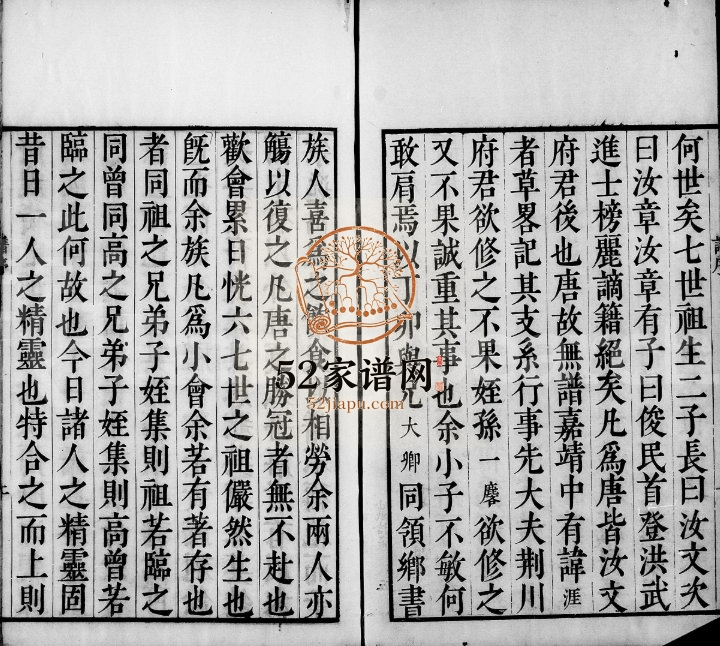 何世矣七世祖生二子長曰汝文次
曰汝章汝章有子曰俊民首登洪武
進士榜麗謫籍絕矣凡爲唐皆汝文
府君後也唐故無譜嘉靖中有諱涯
者草畧記其支系行事先大夫荆川
府君欲修之不果姪孫一麐欲修之
又不果誠重其事也余小子不敏何
敢肩焉以丁卯與兄大卿同領鄉書
族人喜爲之飲食相勞余兩人亦
觴以復之凡唐之勝冠者無不赴也
歡會累日恍六七世之祖儼然生也
旣而余族凡爲小會余若有著存也
者同祖之兄弟子姪集則祖若臨之
同曾同高之兄弟子姪集則高曾若
臨之此何故也今日諸人之精靈固
昔日一人之精靈也特合之而上則
52家谱网
52jiapu.com